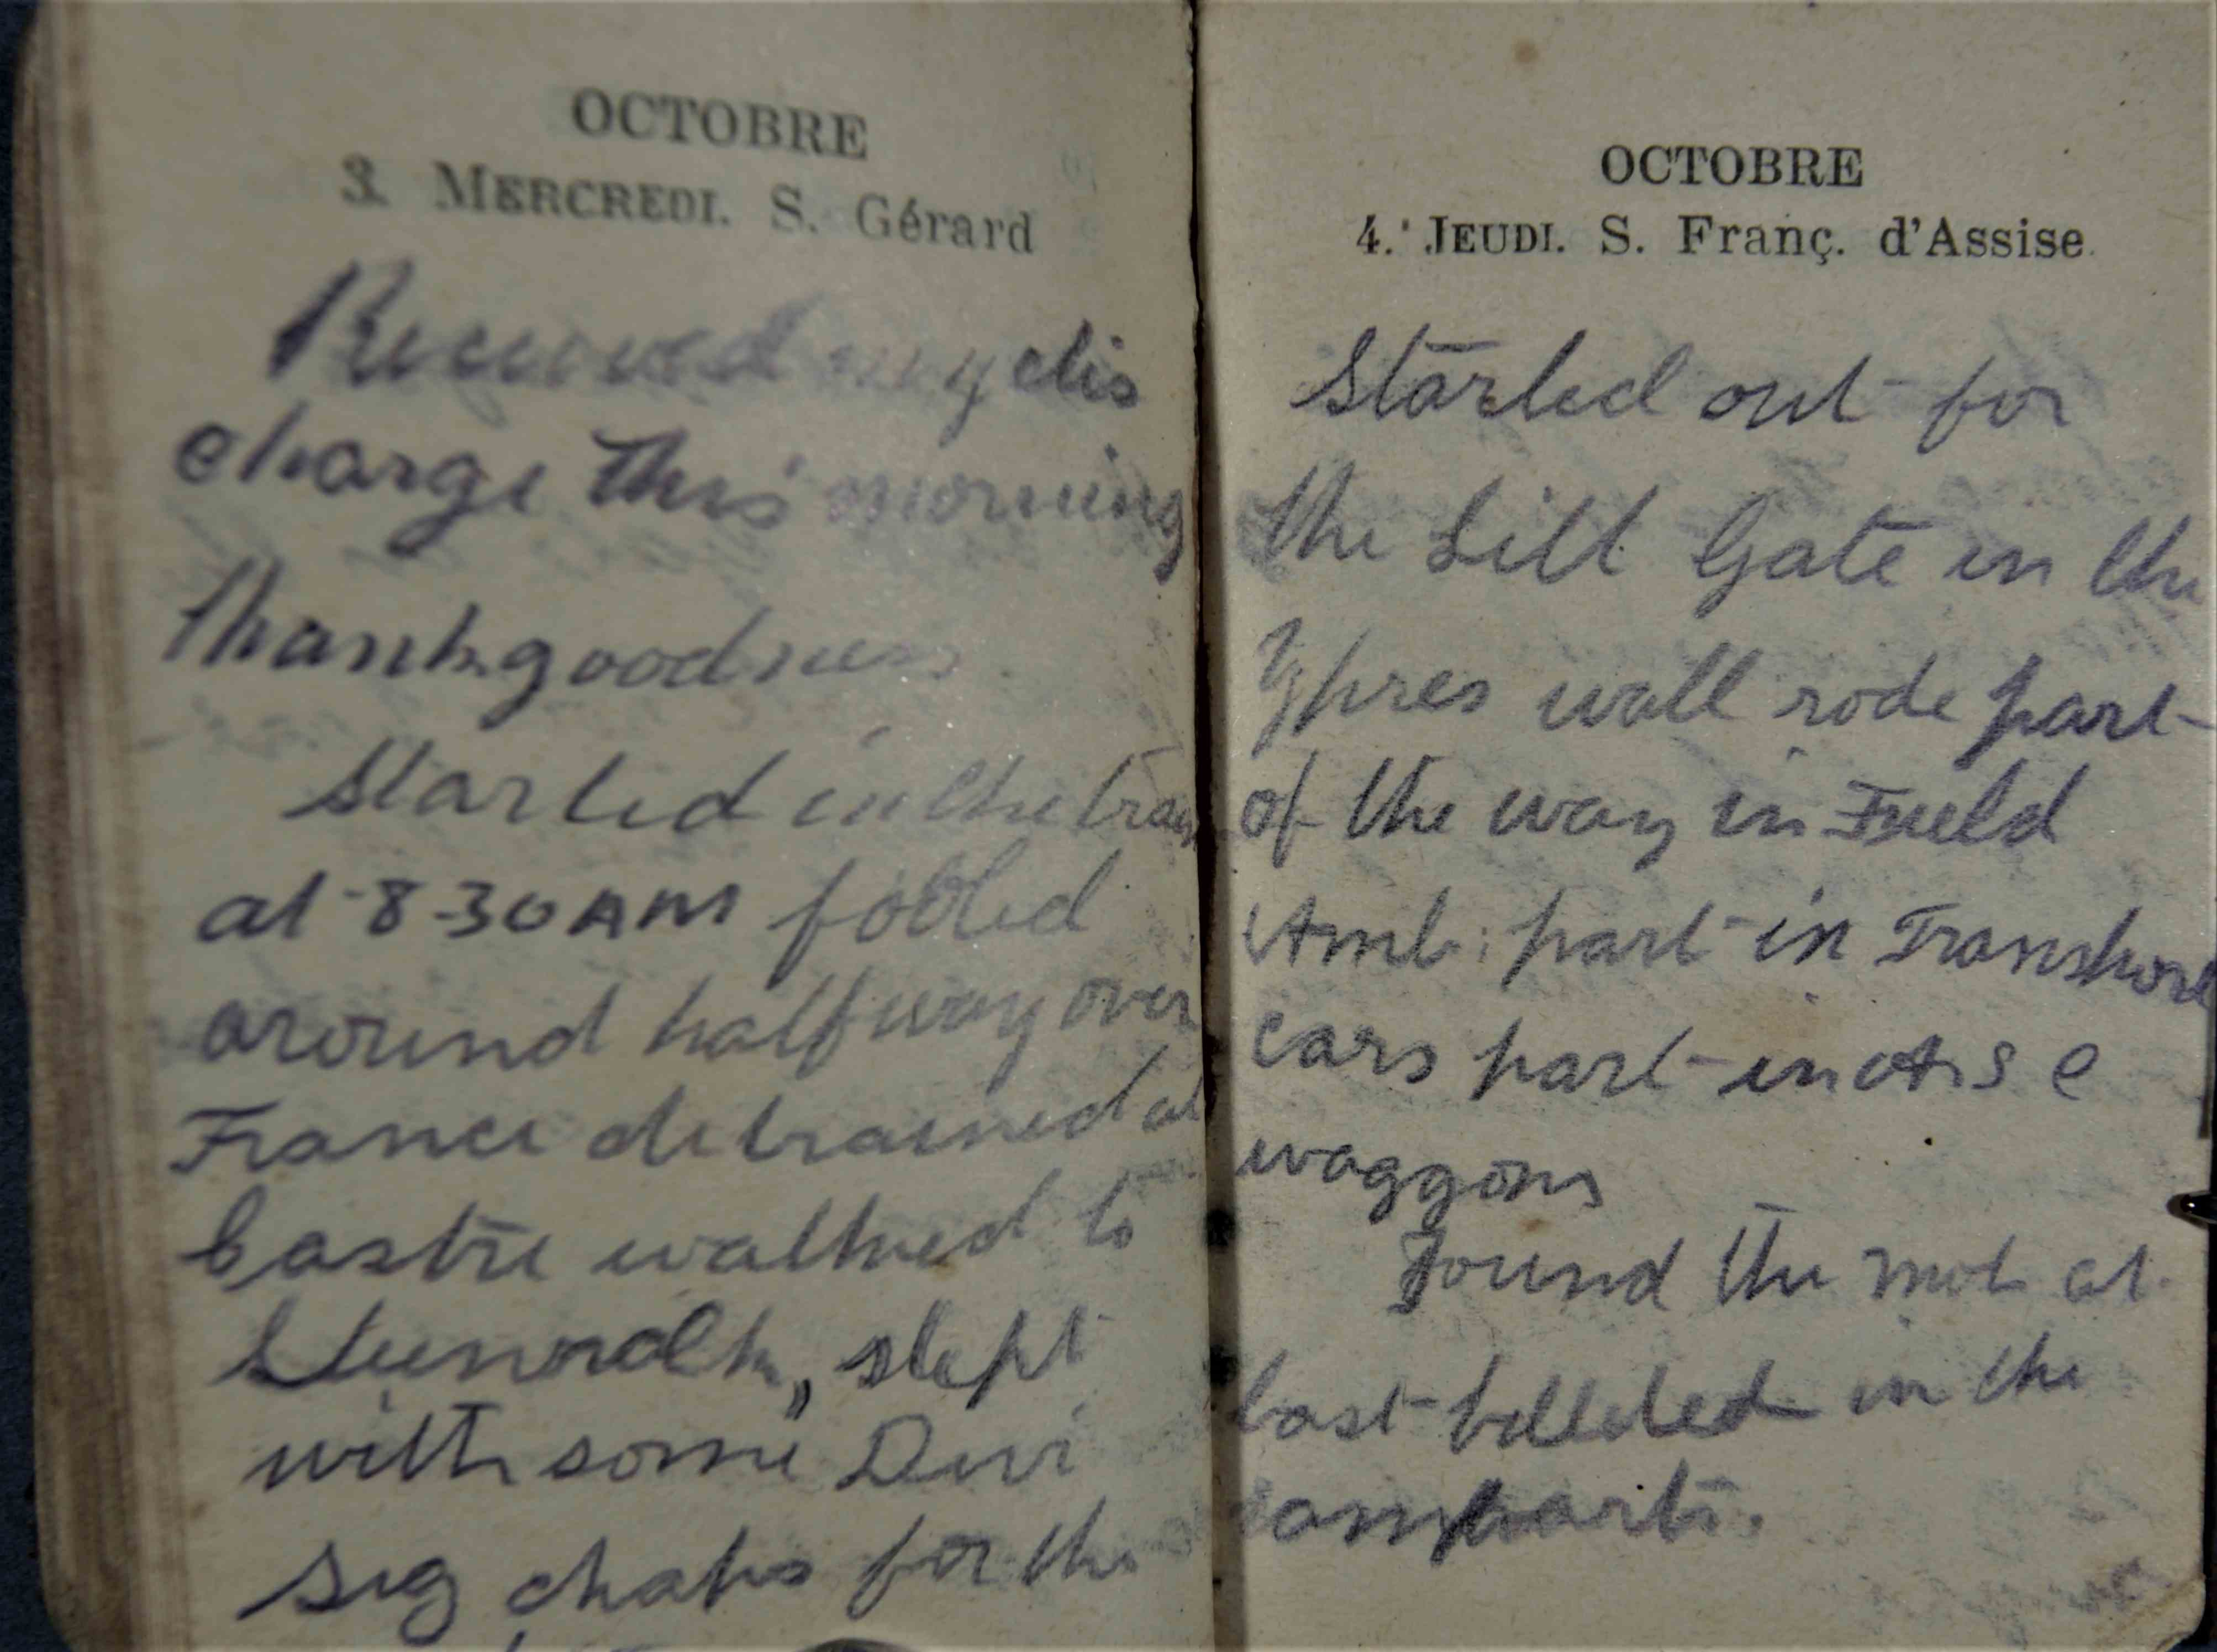 OCTOBRE
3. MERCREDI. S. Gérard
Received my dis
charge this morning
thankgoodness
Started in the train
at 8-30 AM fooled
around halfway over
France detrained at
Castre walked to
slept
with some Divi
sig chaps for the
OCTOBRE
4. JEUDI. S. Franç. d'Assise
Started out for
the Lill Gate in the
Ypres wall rode part
of the way in Field
Amb: part in Transport
cars part in A S C
waggons
Found the mob at
last billeted in the
ramparts.